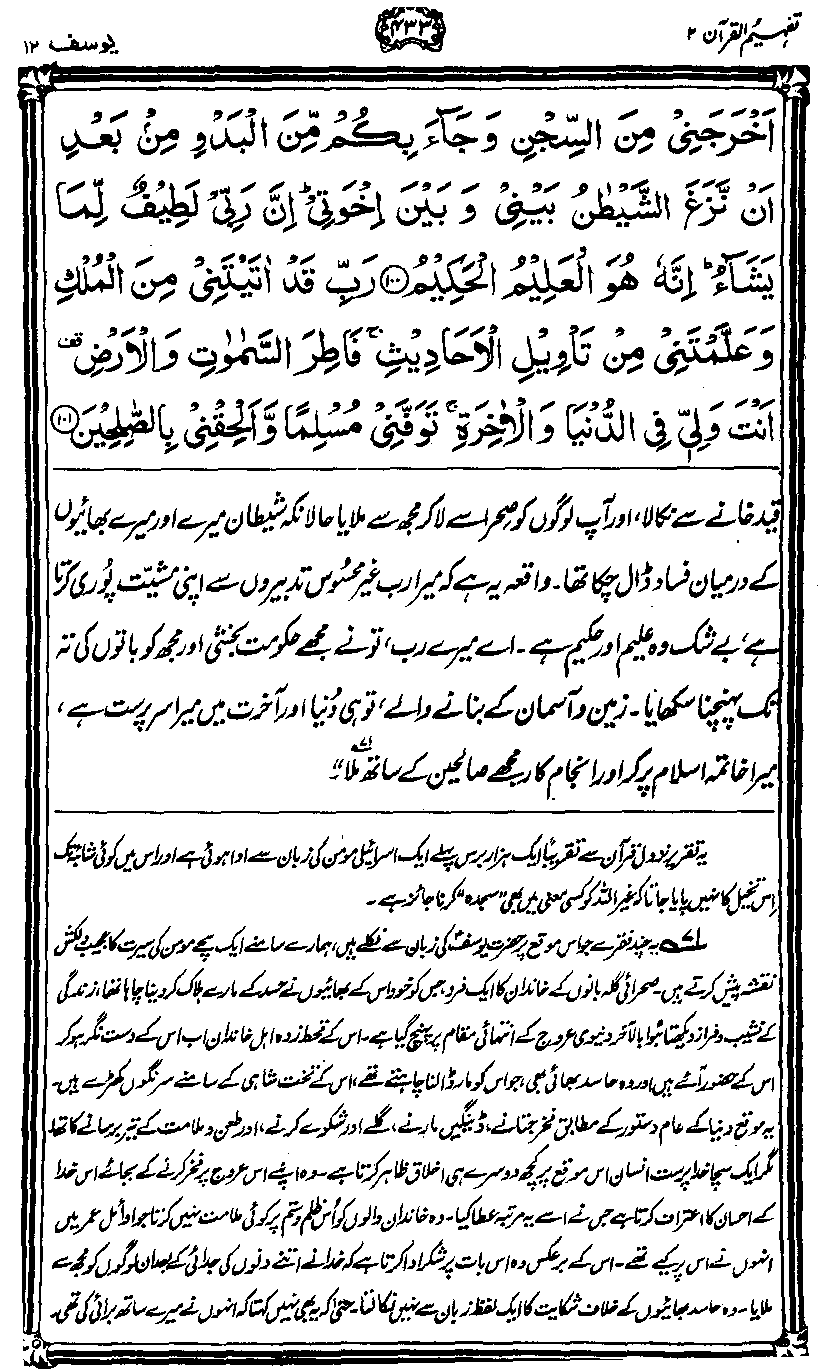 تفہیم القرآن ۲
۴۳۳
یوسف ۱۲
اَخْرَجَنِیْ مِنَ السِّجْنِ وَ جَآءَ بِكُمْ مِّنَ الْبَدْوِ مِنْۢ بَعْدِ
اَنْ نَّزَغَ الشَّیْطٰنُ بَیْنِیْ وَ بَیْنَ اِخْوَتِیْ ؕ اِنَّ رَبِّیْ لَطِیْفٌ لِّمَا
یَشَآءُ ؕ اِنَّهٗ هُوَ الْعَلِیْمُ الْحَكِیْمُ ۝۱۰۰ رَبِّ قَدْ اٰتَیْتَنِیْ مِنَ الْمُلْكِ
وَ عَلَّمْتَنِیْ مِنْ تَاْوِیْلِ الْاَحَادِیْثِ ۚ فَاطِرَ السَّمٰوٰتِ وَ الْاَرْضِ ۫
اَنْتَ وَلِیّٖ فِی الدُّنْیَا وَ الْاٰخِرَةِ ۚ تَوَفَّنِیْ مُسْلِمًا وَّ اَلْحِقْنِیْ بِالصّٰلِحِیْنَ ۝۱۰۱
قید خانے سے نکالا، اور آپ لوگوں کو صحرا سے لا کر مجھ سے ملایا حالانکہ شیطان میرے اور میرے بھائیوں
کے درمیان فساد ڈال چکا تھا۔ واقعہ یہ ہے کہ میرا رب غیر محسُوس تدبیروں سے اپنی مشیّت پُوری کرتا
ہے، بے شک وہ علیم اور حکیم ہے۔ اے میرے رب، تو نے مجھے حکومت بخشی اور مجھ کو باتوں کی تہ
تک پہنچنا سکھایا۔ زمین و آسمان کے بنانے والے، تو ہی دُنیا اور آخرت میں میرا سرپرست ہے،
میرا خاتمہ اسلام پر کر اور انجام کار مجھے صالحین کے ساتھ ملا۷۱"
یہ تقریر نزول قرآن سے تقریباً ایک ہزار برس پہلے ایک اسرائیلی مومن کی زبان سے ادا ہوئی ہے اور اس میں کوئی شائبہ تک
اِس تخیل کا نہیں پایا جاتا کہ غیر اللہ کو کسی معنی میں بھی "سجدہ" کرنا جائز ہے۔
۷۱ یہ چند فقرے جو اس موقع پر حضرت یوسفؑ کی زبان سے نکلے ہیں، ہمارے سامنے ایک سچے مومن کی سیرت کا عجیب دلکش
نقشہ پیش کرتے ہیں۔ صحرائی گلہ بانوں کے خاندان کا ایک فرد، جس کو خود اس کے بھائیوں نے حسد کے مارے ہلاک کر دینا چاہا تھا، زندگی
کے نشیب و فراز دیکھتا ہُوا بالآخر دنیوی عروج کے انتہائی مقام پر پہنچ گیا ہے۔ اس کے قحط زدہ اہل خاندان اب اس کے دست نگر ہو کر
اس کے حضور آئے ہیں اور وہ حاسد بھائی بھی، جو اس کو مار ڈالنا چاہتے تھے، اس کے تخت شاہی کے سامنے سرنگوں کھڑے ہیں۔
یہ موقع دنیا کے عام دستور کے مطابق فخر جتانے، ڈینگیں مارنے، گلے اور شکوے کرنے، اور طعن و ملامت کے تیر برسانے کا تھا
مگر ایک سچا خدا پرست انسان اس موقع پر کچھ دوسرے ہی اخلاق ظاہر کرتا ہے۔ وہ اپنے اس عروج پر فخر کرنے کے بجائے اس خدا
کے احسان کا اعتراف کرتا ہے جس نے اسے یہ مرتبہ عطا کیا۔ وہ خاندان والوں کو اُس ظلم و ستم پر کوئی ملامت نہیں کرتا جو اوائل عمر میں
انہوں نے اس پر کیے تھے۔ اس کے برعکس وہ اس بات پر شکر ادا کرتا ہے کہ خدا نے اتنے دنوں کی جدائی کے بعد ان لوگوں کو مجھ سے
ملایا۔ وہ حاسد بھائیوں کے خلاف شکایت کا ایک لفظ زبان سے نہیں نکالتا۔ حتیٰ کہ یہ بھی نہیں کہتا کہ انہوں نے میرے ساتھ برائی کی تھی۔